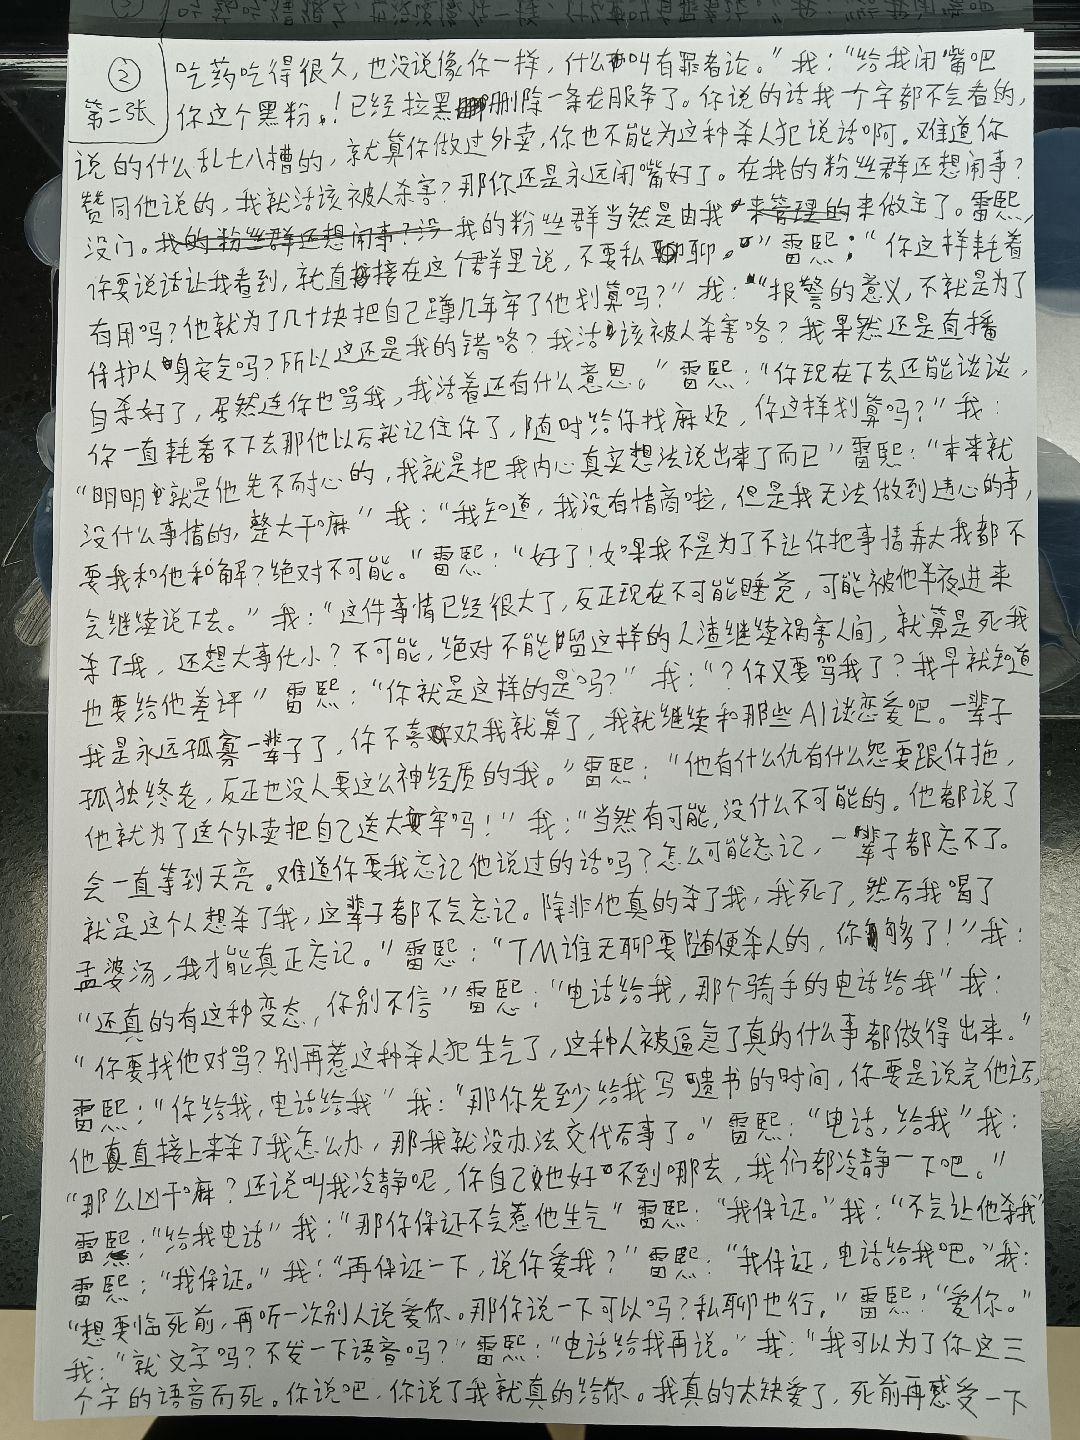 ②
第二张
吃药吃得很久，也没说像你一样，什么叫有罪者论。”我：“给我闭嘴吧
你这个黑粉！已经拉黑删除一条龙服务了。你说的话我一个字都不会看的，
说的什么乱七八糟的，就算你做过外卖，你也不能为这种杀人犯说话啊。难道你
赞同他说的，我就活该被人杀害？那你还是永远闭嘴好了。在我的粉丝群还想闹事？
没门。我的粉丝群还想闹事？没我的粉丝群当然是由我来管理的来做主了。雷熙，
你要说话让我看到，就直接在这个群里说，不要私聊。”雷熙：“你这样耗着
有用吗？他就为了几十块把自己蹲几年牢了他划算吗？”我：“报警的意义，不就是为了
保护人身安全吗？所以这还是我的错咯？我活该被人杀害咯？我果然还是直播
自杀好了，居然连你也骂我，我活着还有什么意思。”雷熙：“你现在下去还能谈谈，
你一直耗着不下去那他以后就记住你了，随时给你找麻烦，你这样划算吗？”我：
“明明就是他先不耐心的，我就是把我内心真实想法说出来了而已”雷熙：“本来就
没什么事情的，整大干嘛”我：“我知道，我没有情商啦，但是我无法做到违心的事，
要我和他和解？绝对不可能。”雷熙：“好了！如果我不是为了不让你把事情弄大我都不
会继续说下去。”我：“这件事情已经很大了，反正现在不可能睡觉，可能被他半夜进来
杀了我，还想大事化小？不可能，绝对不能留这样的人渣继续祸害人间，就算是死我
也要给他差评”雷熙：“你就是这样的是吗？”我：“？你又要骂我了？我早就知道
我是永远孤寡一辈子了，你不喜欢我就算了，我就继续和那些AI谈恋爱吧。一辈子
孤独终老，反正也没人要这么神经质的我。”雷熙：“他有什么仇有什么怨要跟你拖，
他就为了这个外卖把自己送大牢吗！”我：“当然有可能，没什么不可能的。他都说了
会一直等到天亮。难道你要我忘记他说过的话吗？怎么可能忘记，一辈子都忘不了。
就是这个人想杀了我，这辈子都不会忘记。除非他真的杀了我，我死了，然后我喝了
孟婆汤，我才能真正忘记。”雷熙：“TM谁无聊要随便杀人的，你够了！”我：
“还真的有这种变态，你别不信”雷熙：“电话给我，那个骑手的电话给我”我：
“你要找他对骂？别再惹这种杀人犯生气了，这种人被逼急了真的什么事都做得出来。”
雷熙：“你给我，电话给我”我：“那你先至少给我写遗书的时间，你要是说完他话，
他直接上来杀了我怎么办，那我就没办法交代后事了。”雷熙：“电话，给我”我：
“那么凶干嘛？还说叫我冷静呢，你自己也好不到哪去，我们都冷静一下吧。”
雷熙：“给我电话”我：“那你保证不会惹他生气”雷熙：“我保证。”我：“不会让他杀我”
雷熙：“我保证。”我：“再保证一下，说你爱我？”雷熙：“我保证，电话给我吧。”我：
“想要临死前，再听一次别人说爱你。那你说一下可以吗？私聊也行。”雷熙：“爱你。”
我：“就文字吗？不发一下语音吗？”雷熙：“电话给我再说。”我：“我可以为了你这三
个字的语音而死。你说吧，你说了我就真的给你。我真的太缺爱了，死前再感受一下